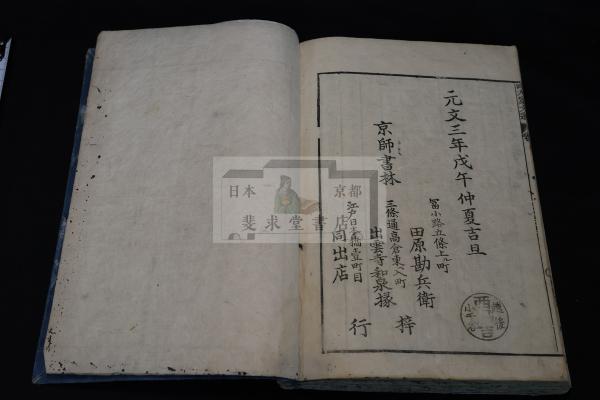 元文三年戊午仲夏吉旦
冨小路五條上ル町
田原勘兵衛 梓
京師書林
三條通高倉東ヘ入町
出雲寺和泉掾
江戸日本橋壹町目
同出店 行
越後
西吉
日本 京都
斐求堂書店